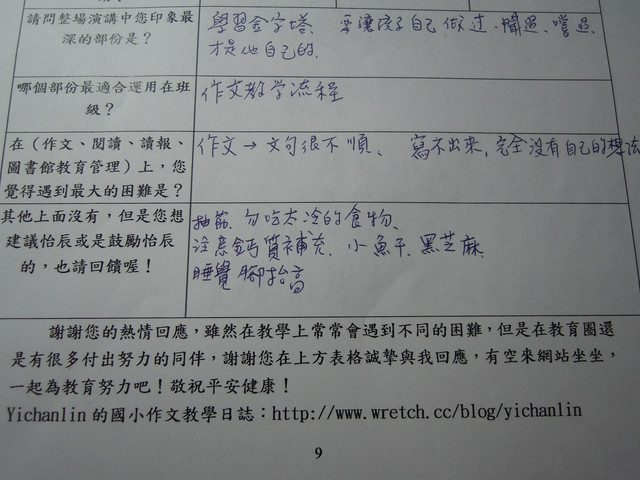 請問整場演講中您印象最
深的部份是？
學習金字塔、要讓孩子自己做過、聞過、嚐過
才是他自己的.
哪個部份最適合運用在班
級？
作文教学流程
在（作文、閱讀、讀報、
圖書館教育管理）上，您
覺得遇到最大的困難是？
作文→文句很不順、寫不出來,完全沒有自己的想法
其他上面沒有，但是您想
建議怡辰或是鼓勵怡辰
的，也請回饋喔！
抽筋、勿吃太冷的食物、
注意鈣質補充、小魚干、黑芝麻
睡覺腳抬高
謝謝您的熱情回應，雖然在教學上常常會遇到不同的困難，但是在教育圈還
是有很多付出努力的同伴，謝謝您在上方表格誠摯與我回應，有空來網站坐坐，
一起為教育努力吧！敬祝平安健康！
Yichanlin 的國小作文教學日誌：http://www.wretch.cc/blog/yichanlin
9